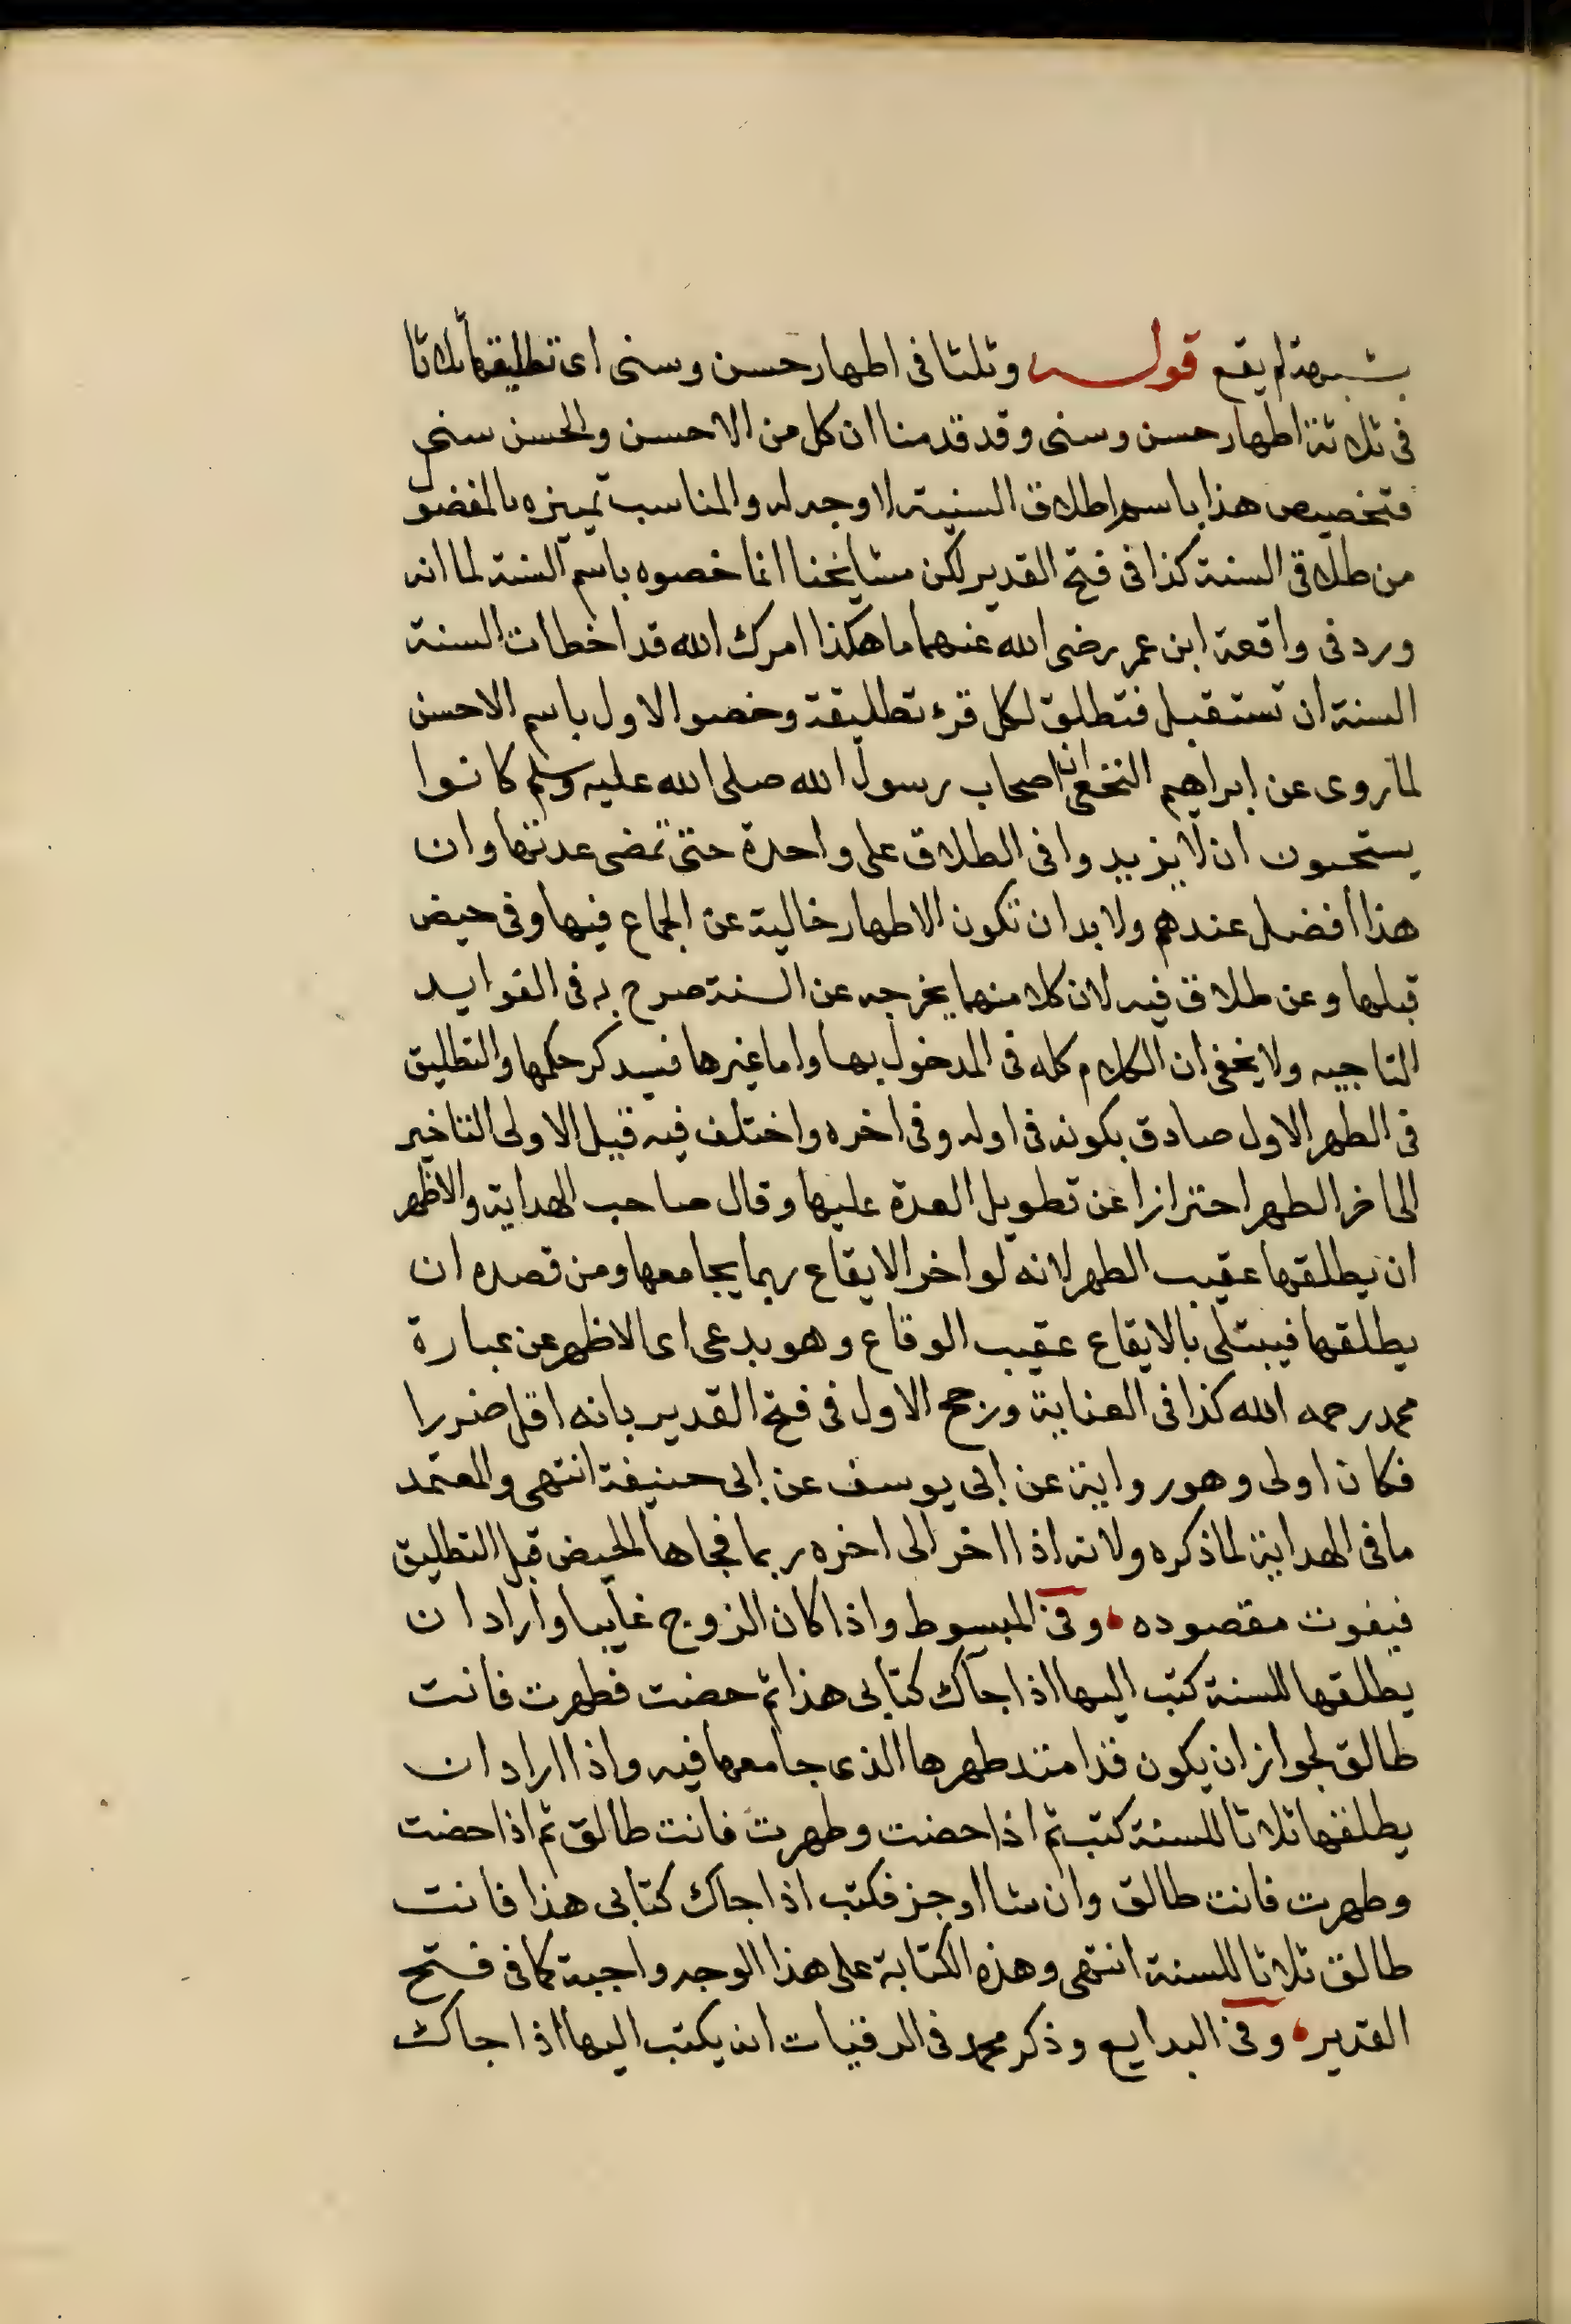 بشبهة لم يقع قوله وثلثا فى اطهار حسن وسنى اى تطليقها ثلاثا
فى ثلاثة اطهار حسن وسنى وقد قدمنا ان كل من الاحسن والحسن سنى
فتخصيص هذا باسم اطلاق السنية لا وجه له والمناسب تمييزه بالمفضو
من طلاقى السنة كذا فى فتح القدير لكن مشايخنا انما خصوه باسم السنة لما انه
ورد فى واقعة ابن عمر رضى الله عنهما ما هكذا امرك الله قد اخطات السنة
السنة ان تستقبل فتطلق لكل قرء تطليقة وخصوا الاول باسم الاحسن
لما روى عن ابراهيم النخعى ان اصحاب رسول الله صلى الله عليه وسلم كانوا
يستحبون ان لا يزيدوا فى الطلاق على واحدة حتى تمضى عدتها وان
هذا افضل عندهم ولا بد ان تكون الاطهار خالية عن الجماع فيها وفى حيض
قبلها وعن طلاق فيه لان كلا منهما يخرجه عن السنة صرح به فى الفوايد
التاجيه ولا يخفى ان الكلام كله فى المدخول بها واما غيرها فسيد كر حكمها والتطليق
فى الطهر الاول صادق بكونه فى اوله وفى اخره واختلف فيه فقيل الاولى التاخير
الى اخر الطهر احترازا عن تطويل العدة عليها وقال صاحب الهداية والاظهر
ان يطلقها عقيب الطهر لانه لو اخر الايقاع ربما يجامعها ومن قصده ان
يطلقها فيبتلى بالايقاع عقيب الوقاع وهو يدعى اى الاظهر عن عبارة
محمد رحمه الله كذا فى العناية ورجح الاول فى فتح القدير بانه اقل ضررا
فكان اولى وهو رواية عن ابى يوسف عن ابى حنيفة انتهى والمعتمد
ما فى الهداية لما ذكره ولانه اذا اخر الى اخره ربما فجاها الحيض قبل التطليق
فيفوت مقصوده وفى المبسوط واذا كان الزوج غايبا واراد ان
يطلقها للسنة كتب اليها اذا جاك كتابى هذا ثم حضت فطهرت فانت
طالق لجواز ان يكون قد امتد طهرها الذى جامعها فيه واذا اراد ان
يطلقها ثلاثا للسنة كتب ثم اذا حضت وطهرت فانت طالق ثم اذا حضت
وطهرت فانت طالق وان شا اوجز فكتب اذا جاك كتابى هذا فانت
طالق ثلاثا للسنة انتهى وهذه الكتابة على هذا الوجه واجبة كما فى فتح
القدير وفى البدايع وذكر محمد فى الرقيات انه يكتب اليها اذا جاك